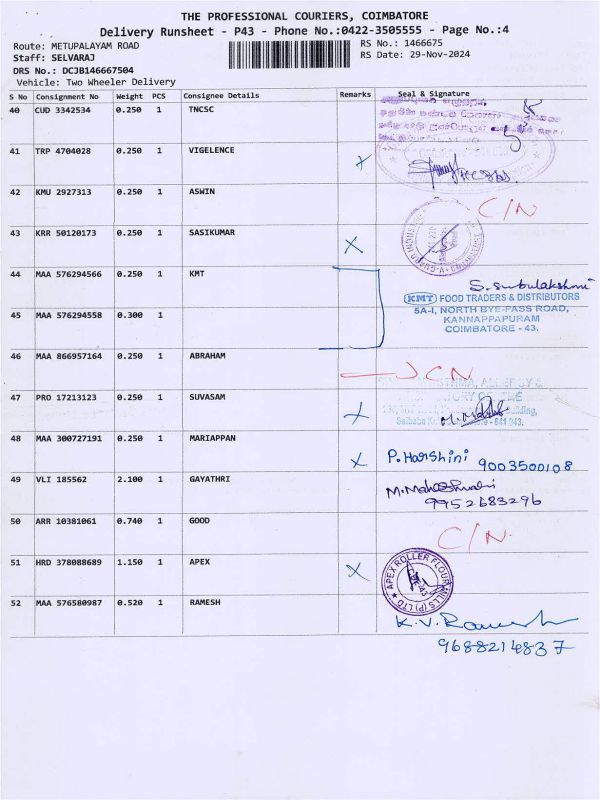 THE PROFESSIONAL COURIERS, COIMBATORE
Delivery Runsheet - P43 - Phone No.:0422-3505555 - Page No.:4
Route: METUPALAYAM ROAD
RS No.: 1466675
Staff: SELVARAJ
RS Date: 29-Nov-2024
DRS No.: DCJB146667504
Vehicle: Two Wheeler Delivery
S No Consignment No Weight PCS Consignee Details Remarks Seal & Signature
40 CUD 3342534 0.250 1 TNCSC
41 TRP 4704028 0.250 1 VIGELENCE x
42 KMU 2927313 0.250 1 ASWIN C/N
43 KRR 50120173 0.250 1 SASIKUMAR x
44 MAA 576294566 0.250 1 KMT
S. Subulakshmi
KMT FOOD TRADERS & DISTRIBUTORS
5A-I, NORTH BYE-PASS ROAD,
KANNAPPAPURAM
COIMBATORE - 43.
45 MAA 576294558 0.300 1
46 MAA 866957164 0.250 1 ABRAHAM
47 PRO 17213123 0.250 1 SUVASAM x
48 MAA 300727191 0.250 1 MARIAPPAN x P. Harshini 9003500108
49 VLI 185562 2.100 1 GAYATHRI M. Maheshwari
9952683296
50 ARR 10381061 0.740 1 GOOD C/N.
51 HRD 378088689 1.150 1 APEX x APEX ROLLER FLOUR MILLS (P) LTD
52 MAA 576580987 0.520 1 RAMESH K.V. Ramesh
9688214837